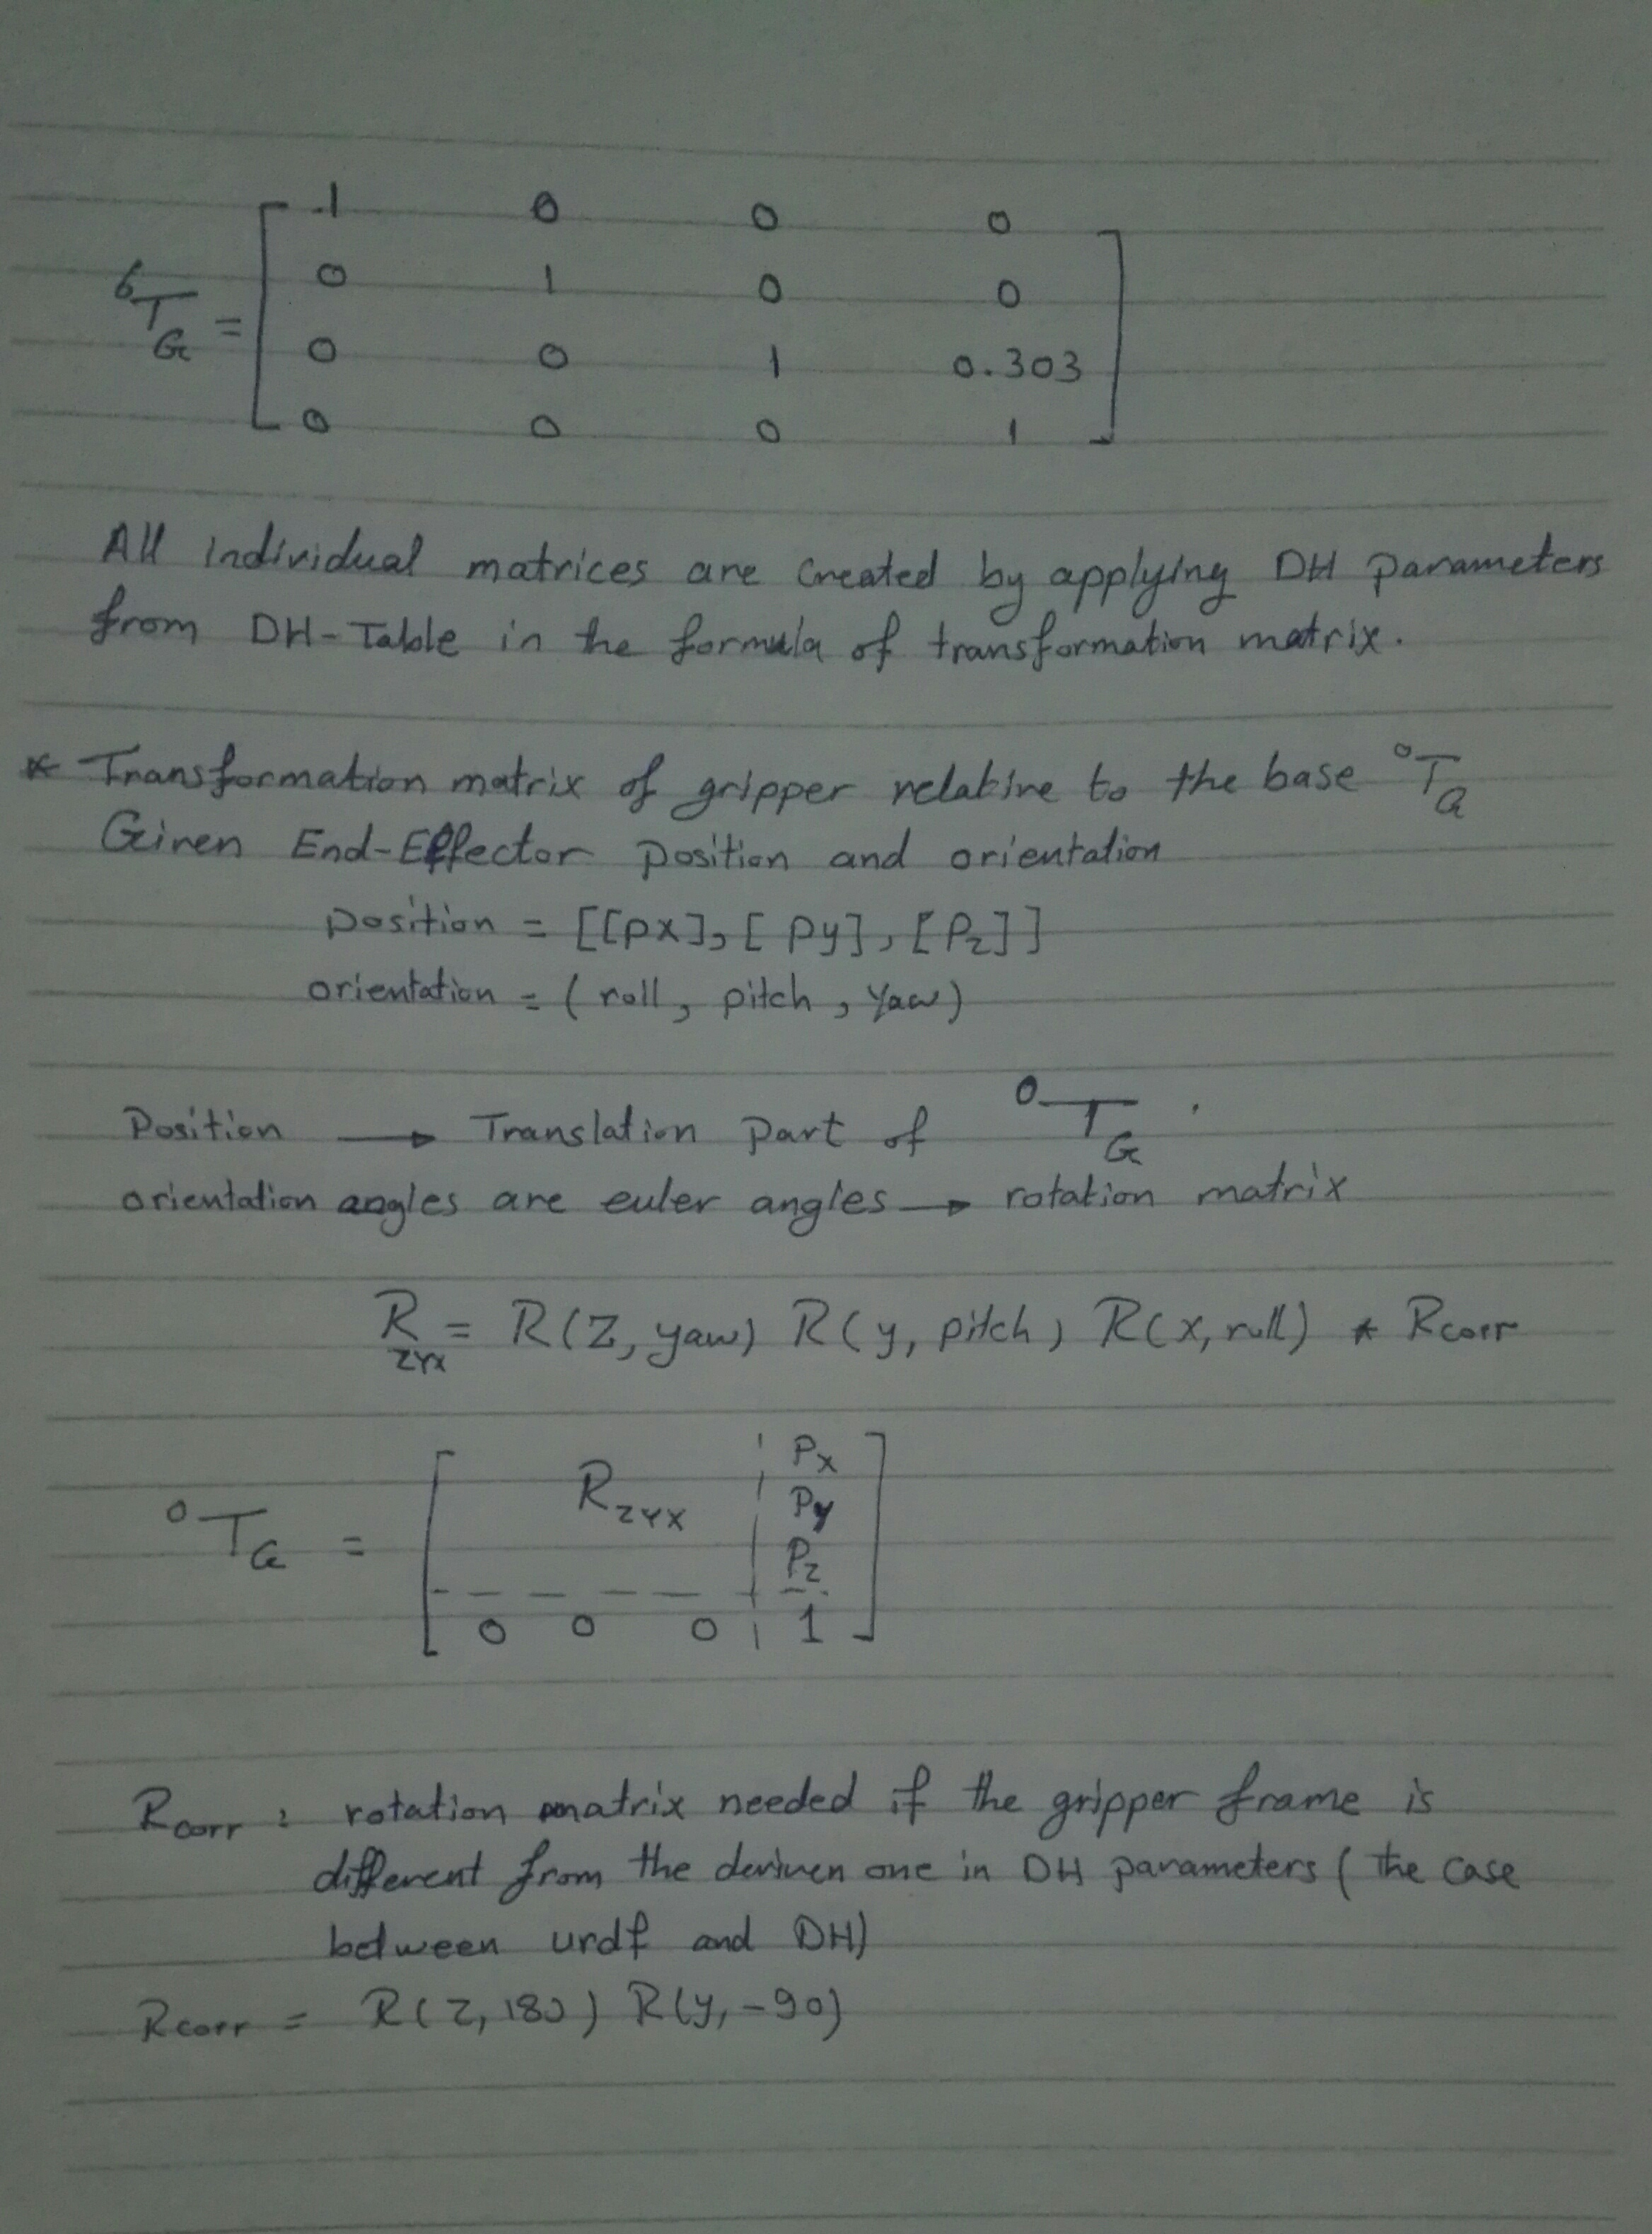 ⁶T_G = [ 1 0 0 0
0 1 0 0
0 0 1 0.303
0 0 0 1 ]
All individual matrices are created by applying DH parameters
from DH-Table in the formula of transformation matrix.
* Transformation matrix of gripper relative to the base ⁰T_G
Given End-Effector position and orientation
position = [[px], [py], [Pz]]
orientation = (roll, pitch, yaw)
Position → Translation part of ⁰T_G.
orientation angles are euler angles → rotation matrix
R_ZYX = R(Z, yaw) R(y, pitch) R(x, roll) * Rcorr
⁰T_G = [ R_ZYX | Px
Py
Pz
0 0 0 | 1 ]
Rcorr : rotation matrix needed if the gripper frame is
different from the deriven one in DH parameters (the case
between urdf and DH)
Rcorr = R(z, 180) R(y, -90)